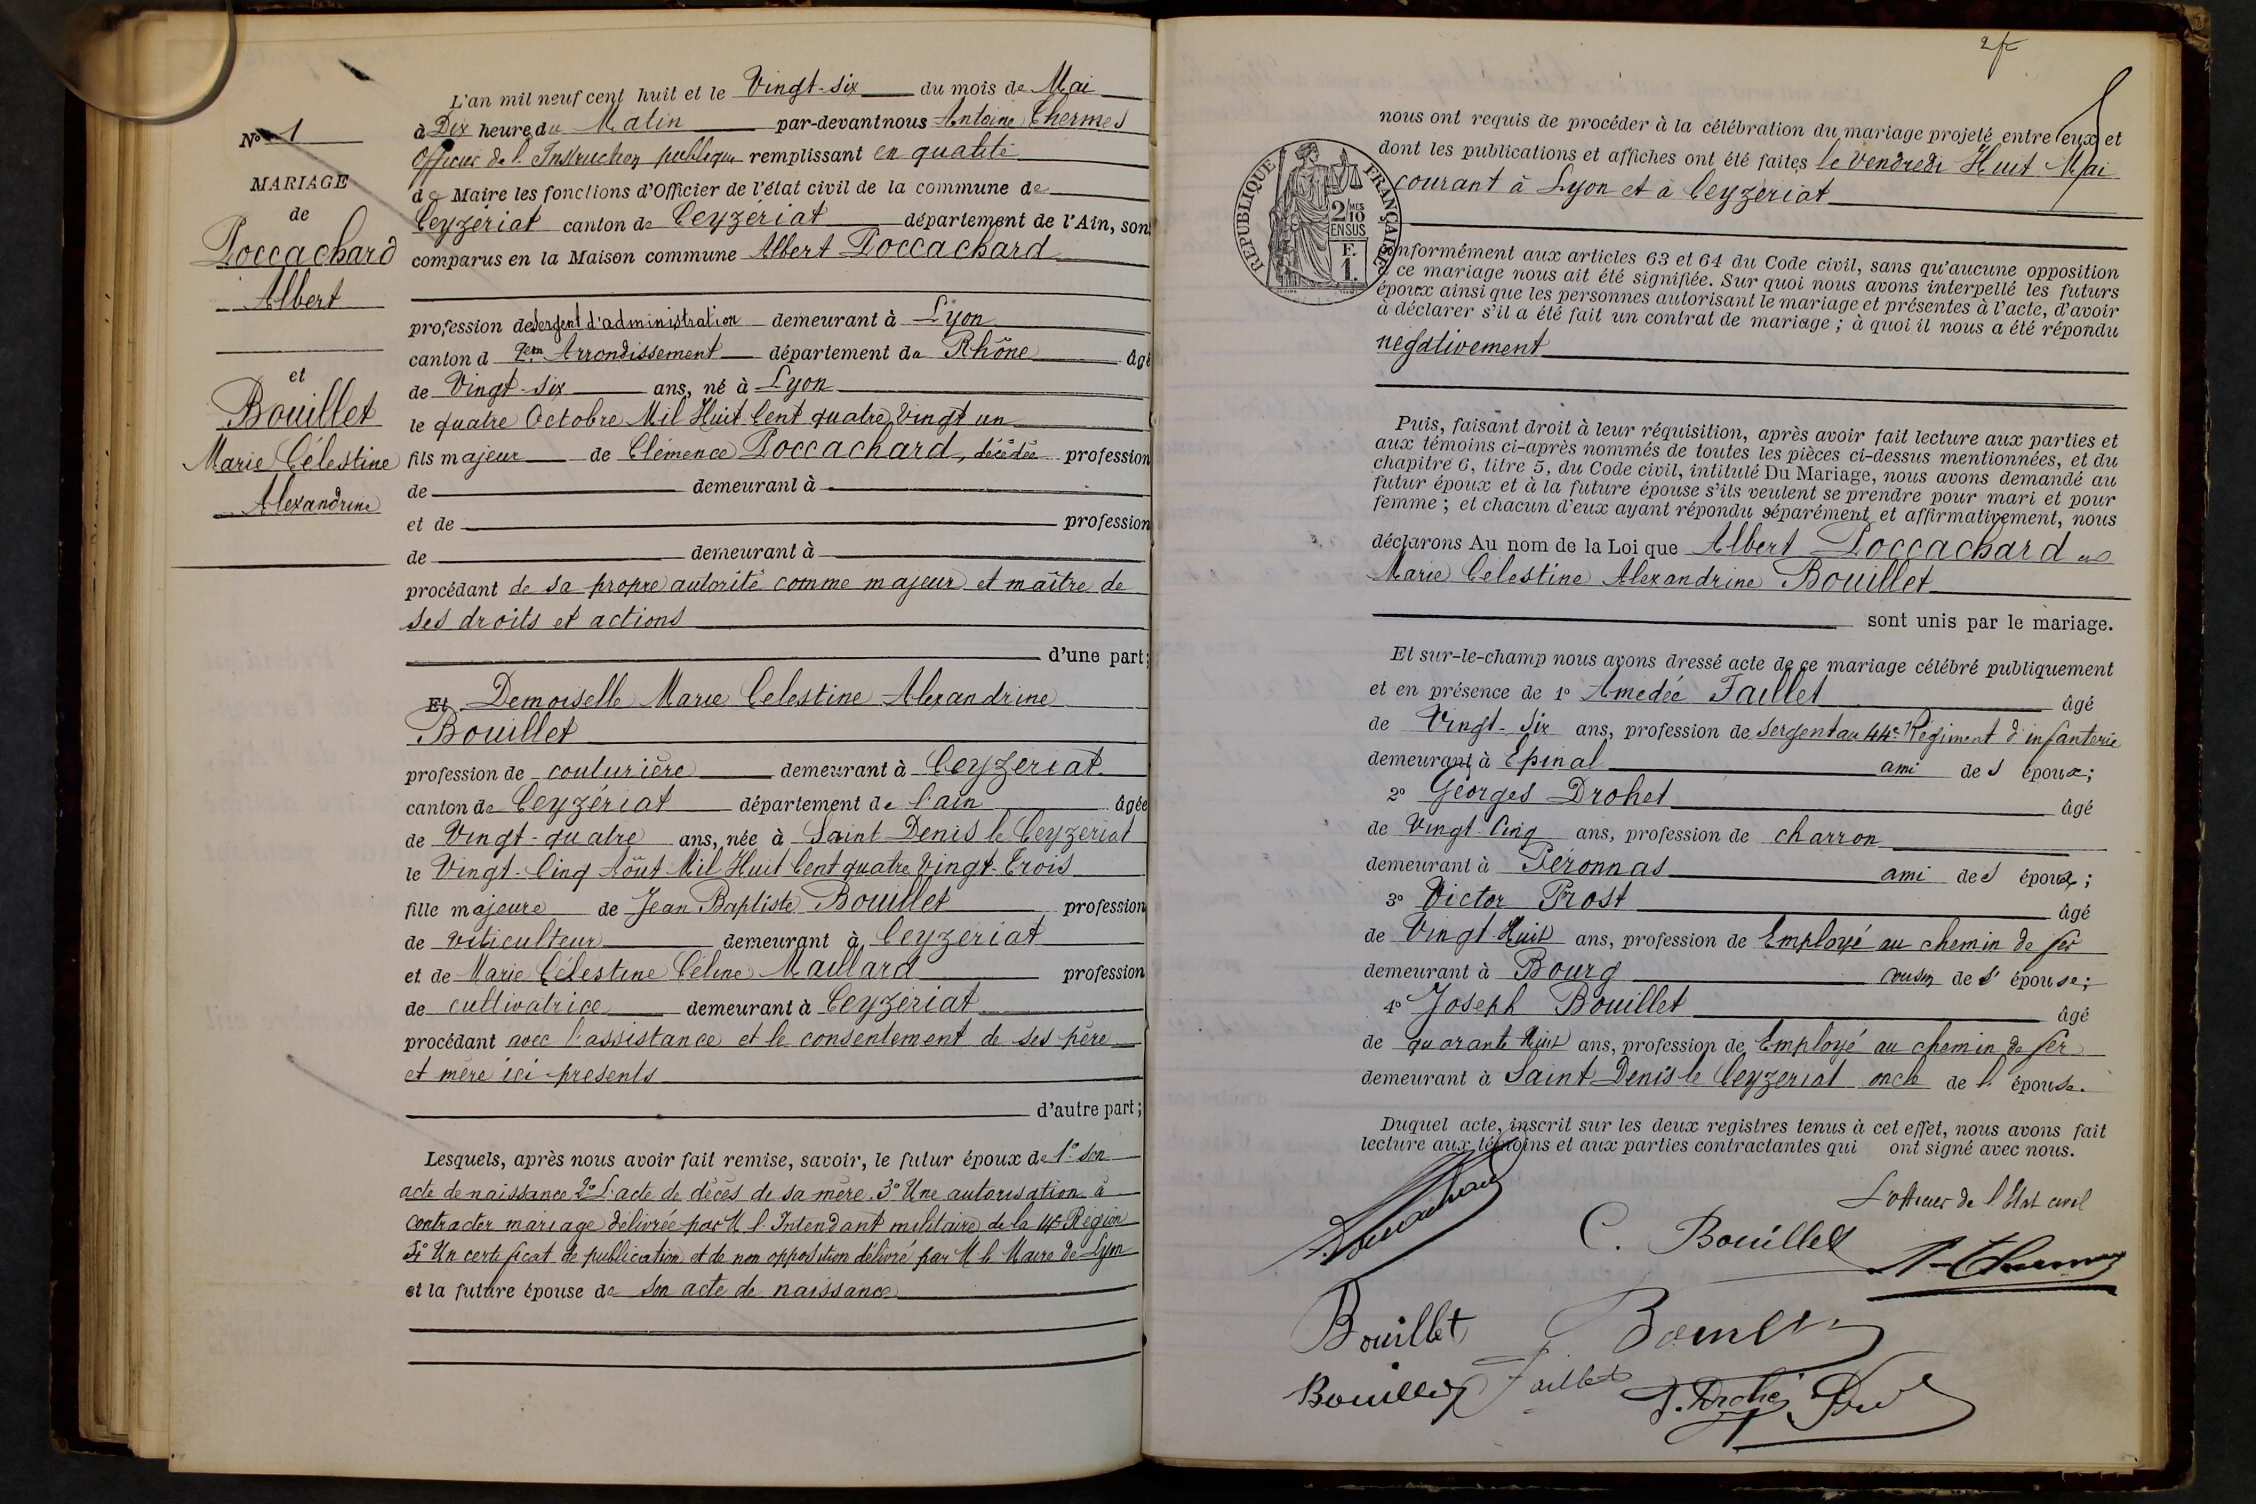 N° 1
MARIAGE
de
Poccachard
Albert
et
Bouillet
Marie Célestine
Alexandrine
L'an mil neuf cent huit et le Vingt-six du mois de Mai
à Dix heure du Matin par-devant nous Antoine Thermes
Officier de l'Instruction publique remplissant en qualité
de Maire les fonctions d'Officier de l'état civil de la commune de
Ceyzériat canton de Ceyzériat département de l'Ain, sont
comparus en la Maison commune Albert Poccachard
profession de Sergent d'administration demeurant à Lyon
canton d Arrondissement département du Rhône âgé
de Vingt-six ans, né à Lyon
le quatre Octobre Mil Huit Cent quatre Vingt un
fils majeur de Clémence Poccachard, décédée profession
de demeurant à
et de profession
de demeurant à
procédant de sa propre autorité comme majeur et maître de
ses droits et actions
d'une part;
Et Demoiselle Marie Celestine Alexandrine
Bouillet
profession de couturière demeurant à Ceyzeriat
canton de Ceyzériat département de l'ain âgée
de Vingt-quatre ans, née à Saint Denis le Ceyzeriat
le Vingt-Cinq Aôut Mil Huit Cent quatre Vingt-Trois
fille majeure de Jean Baptiste Bouillet profession
de viticulteur demeurant à Ceyzeriat
et de Marie Célestine Céline Maillard profession
de cultivatrice demeurant à Ceyzériat
procédant avec l'assistance et le consentement de ses père
et mère ici presents
d'autre part;
Lesquels, après nous avoir fait remise, savoir, le futur époux de 1° son
acte de naissance 2° L'acte de décès de sa mère. 3° Une autorisation à
contracter mariage délivrée par M l'Intendant militaire de la Région
4° Un certificat de publication et de non opposition délivré par M le Maire de Lyon
et la future épouse de son acte de naissance
nous ont requis de procéder à la célébration du mariage projeté entre eux et
dont les publications et affiches ont été faites le Vendredi Huit Mai
courant à Lyon et à Ceyzériat
RÉPUBLIQUE FRANÇAISE
2/10 MES
EN SUS
F.
1.
conformément aux articles 63 et 64 du Code civil, sans qu'aucune opposition
ce mariage nous ait été signifiée. Sur quoi nous avons interpellé les futurs
époux ainsi que les personnes autorisant le mariage et présentes à l'acte, d'avoir
à déclarer s'il a été fait un contrat de mariage ; à quoi il nous a été répondu
négativement
Puis, faisant droit à leur réquisition, après avoir fait lecture aux parties et
aux témoins ci-après nommés de toutes les pièces ci-dessus mentionnées, et du
chapitre 6, titre 5, du Code civil, intitulé Du Mariage, nous avons demandé au
futur époux et à la future épouse s'ils veulent se prendre pour mari et pour
femme ; et chacun d'eux ayant répondu séparément et affirmativement, nous
déclarons Au nom de la Loi que Albert Poccachard et
Marie Célestine Alexandrine Bouillet
sont unis par le mariage.
Et sur-le-champ nous avons dressé acte de ce mariage célébré publiquement
et en présence de 1° Amedée Taillet âgé
de Vingt-Six ans, profession de Sergent au 44e Régiment d'infanterie
demeurant à Epinal ami des époux;
2° Georges Drohet âgé
de Vingt-Cinq ans, profession de charron
demeurant à Péronnas ami des époux;
3° Victor Prost âgé
de Vingt Huit ans, profession de Employé au chemin de fer
demeurant à Bourg cousin de l' épouse;
4° Joseph Bouillet âgé
de quarante Huit ans, profession de Employé au chemin de fer
demeurant à Saint Denis le Ceyzeriat oncle de l' épouse.
Duquel acte, inscrit sur les deux registres tenus à cet effet, nous avons fait
lecture aux témoins et aux parties contractantes qui ont signé avec nous.
L'officier de l'Etat civil
C. Bouillet
Bouillet
Bouillet Taillet